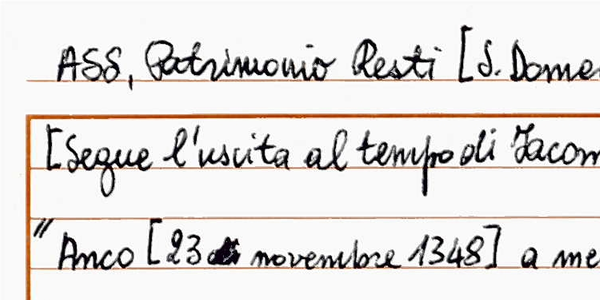 ASS, Patrimonio Resti [S. Dome
[Segue l'uscita al tempo di Jacom
"Anco [23 novembre 1348] a me